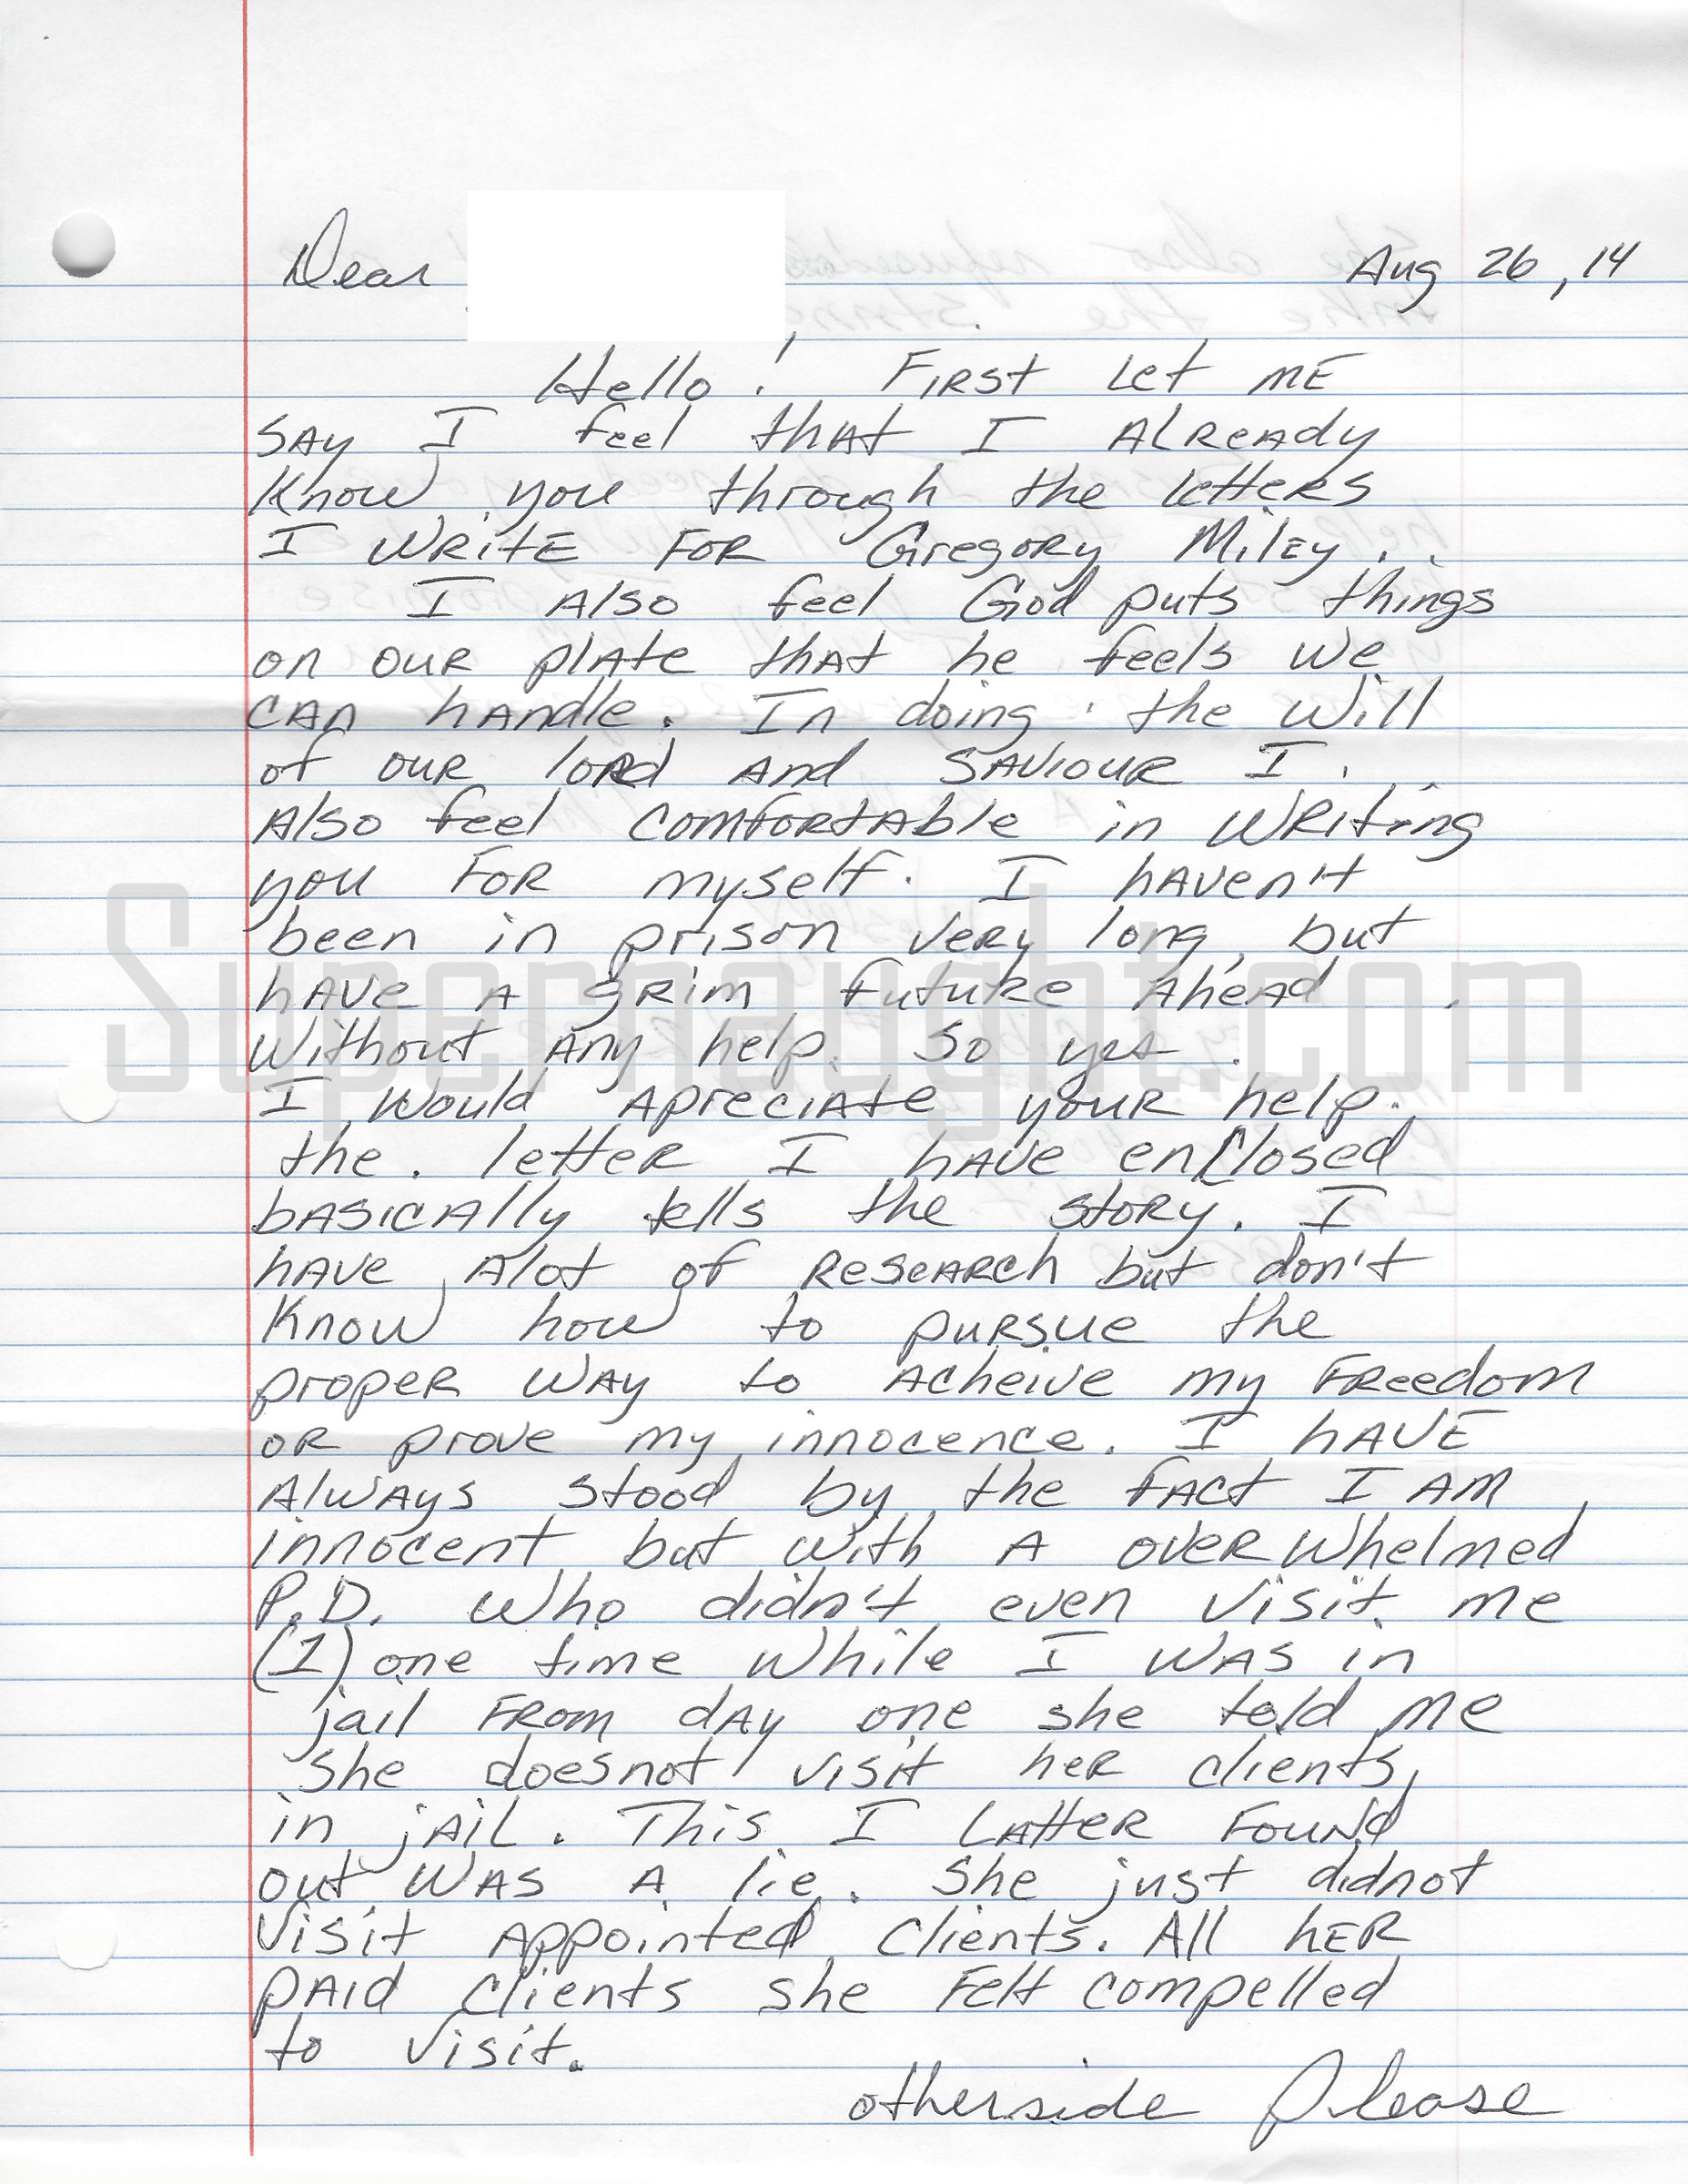 Dear , Aug 26, 14
Hello! First let me
say I feel that I already
know you through the letters
I write for Gregory Miley.
I also feel God puts things
on our plate that he feels we
can handle. In doing the will
of our lord and saviour I
also feel comfortable in writing
you for myself. I haven't
been in prison very long, but
have a grim future ahead
without any help. So yes
I would apreciate your help.
the letter I have enclosed
basically tells the story. I
have alot of research but don't
know how to pursue the
proper way to acheive my freedom
or prove my innocence. I have
always stood by the fact I am
innocent but with a over whelmed
P.D. who didn't even visit me
(1) one time while I was in
jail from day one she told me
she doesnot visit her clients
in jail. This I latter found
out was a lie. She just didnot
visit appointed clients. All her
paid clients she felt compelled
to visit.
otherside Please
Supernaught.com